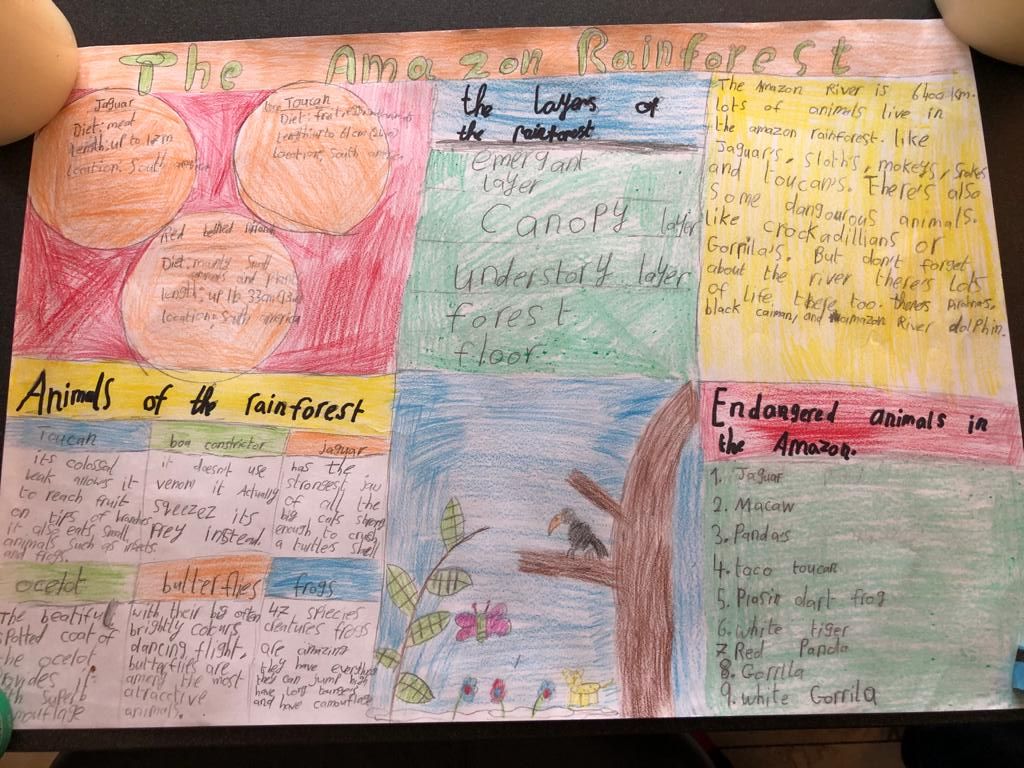 The Amazon Rainforest
Jaguar
Diet: meat
Length: up to 1.2m
Location: South
Toucan
Diet: fruit
Length: up to 61cm
Location: South
Red bellied
Diet: mainly small
and
length: up to 33cm
location: South america
the layers of
the rainforest
emergant
layer
Canopy layer
understory layer
forest
floor
The Amazon River is 6400 km.
lots of animals live in
the amazon rainforest. like
Jaguar's, sloth's, mokeys, snakes
and toucans. There's also
some dangourous animals.
like crockadillians or
Gorrila's. But don't forget
about the river there's lots
of life there too. theres Piranas.
black caiman, and amazon River dolphin.
Animals of the rainforest
Toucan
its colossal
beak allows it
to reach fruit
on tips of branches
it also eats small
animals such as insects
and frogs.
boa constrictor
it doesnt use
venom it Actually
squeezez its
Prey instead.
jaguar
has the
strongest jaw
of all the
big cats strong
enough to crush
a turtles shell
ocelot
The beatiful
spotted coat of
the ocelot
it
superb
butterflies
with their big often
brightly colours
dancing flight,
butterflies are
among the most
attractive
animals.
frogs
47 species
frogs
are amazing
they have
they can jump high
have long
and have camouflage
Endangered animals in
the Amazon.
1. Jaguar
2. Macaw
3. Pandas
4. toco toucan
5. dart frog
6. white tiger
7 Red Panda
8. Gorrila
9. white Gorrila